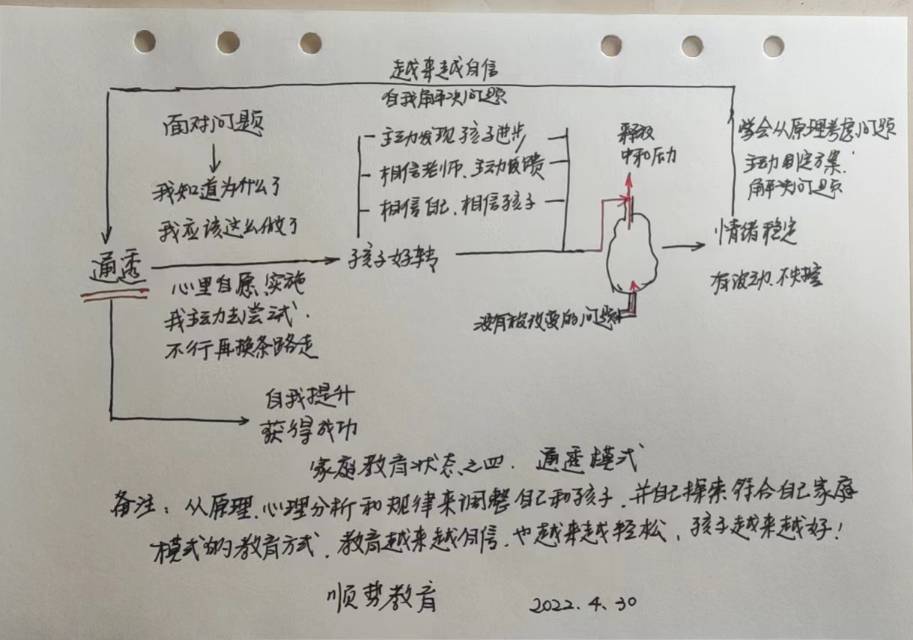 越来越自信
自我解决问题
面对问题
我知道为什么了
我应该这么做了
主动发现孩子进步
相信老师、主动反馈
相信自己、相信孩子
释放
中和压力
学会从原理考虑问题
主动制定方案.
解决问题
通透
孩子好转
情绪稳定
有波动、不失控
心里自愿、实施
我主动去尝试.
不行再换条路走
没有被改变的问题
自我提升
获得成功
家庭教育状态之四. 通透模式
备注: 从原理、心理分析和规律来调整自己和孩子, 并自己探索符合自己家庭
模式的教育方式, 教育越来越自信, 也越来越轻松, 孩子越来越好!
顺势教育 2022.4.30